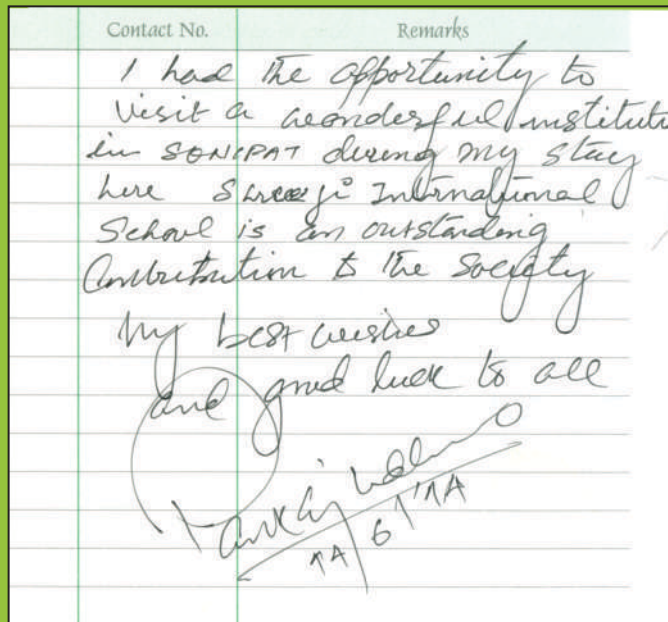 Contact No. Remarks
I had the opportunity to
visit a wonderful institute
in SONIPAT during my stay
here International
School is an outstanding
Contribution to the Society
My best wishes
and good luck to all